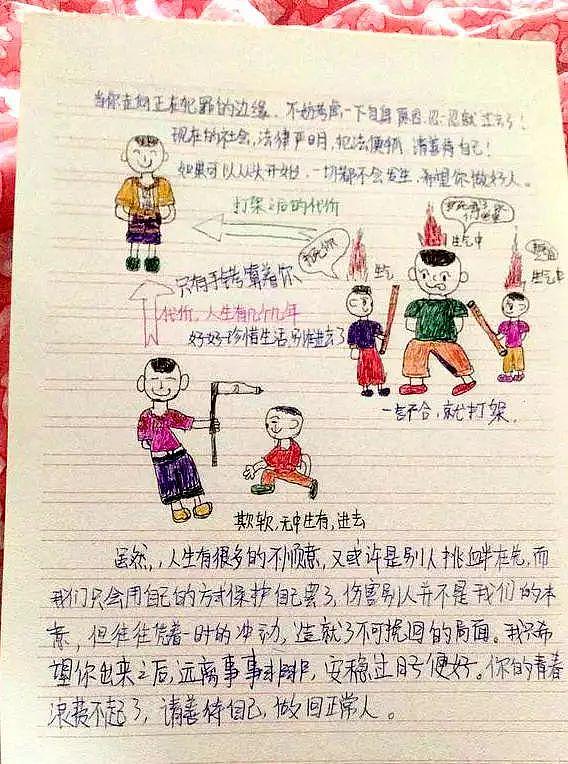 当你走向正在犯罪的边缘，不妨考虑一下自身原因，忍一忍就过去了！
现在的社会，法律严明，犯法便抓，请善待自己！
如果可以从头开始，一切都不会发生，希望你做好人。
打架之后的代价
生气中
生气
生气中
只有手铐靠着你
代价，人生有几个九年
好好珍惜生活别进去了
一言不合，就打架
欺软，无中生有，进去
虽然，，人生有很多的不顺意，又或许是别人挑衅在先，而
我们只会用自己的方式保护自己罢了，伤害别人并不是我们的本
意，但往往凭着一时的冲动，造就了不可挽回的局面。我只希
望你出来之后，远离事事非非，安稳过日子便好。你的青春
浪费不起了，请善待自己，做回正常人。